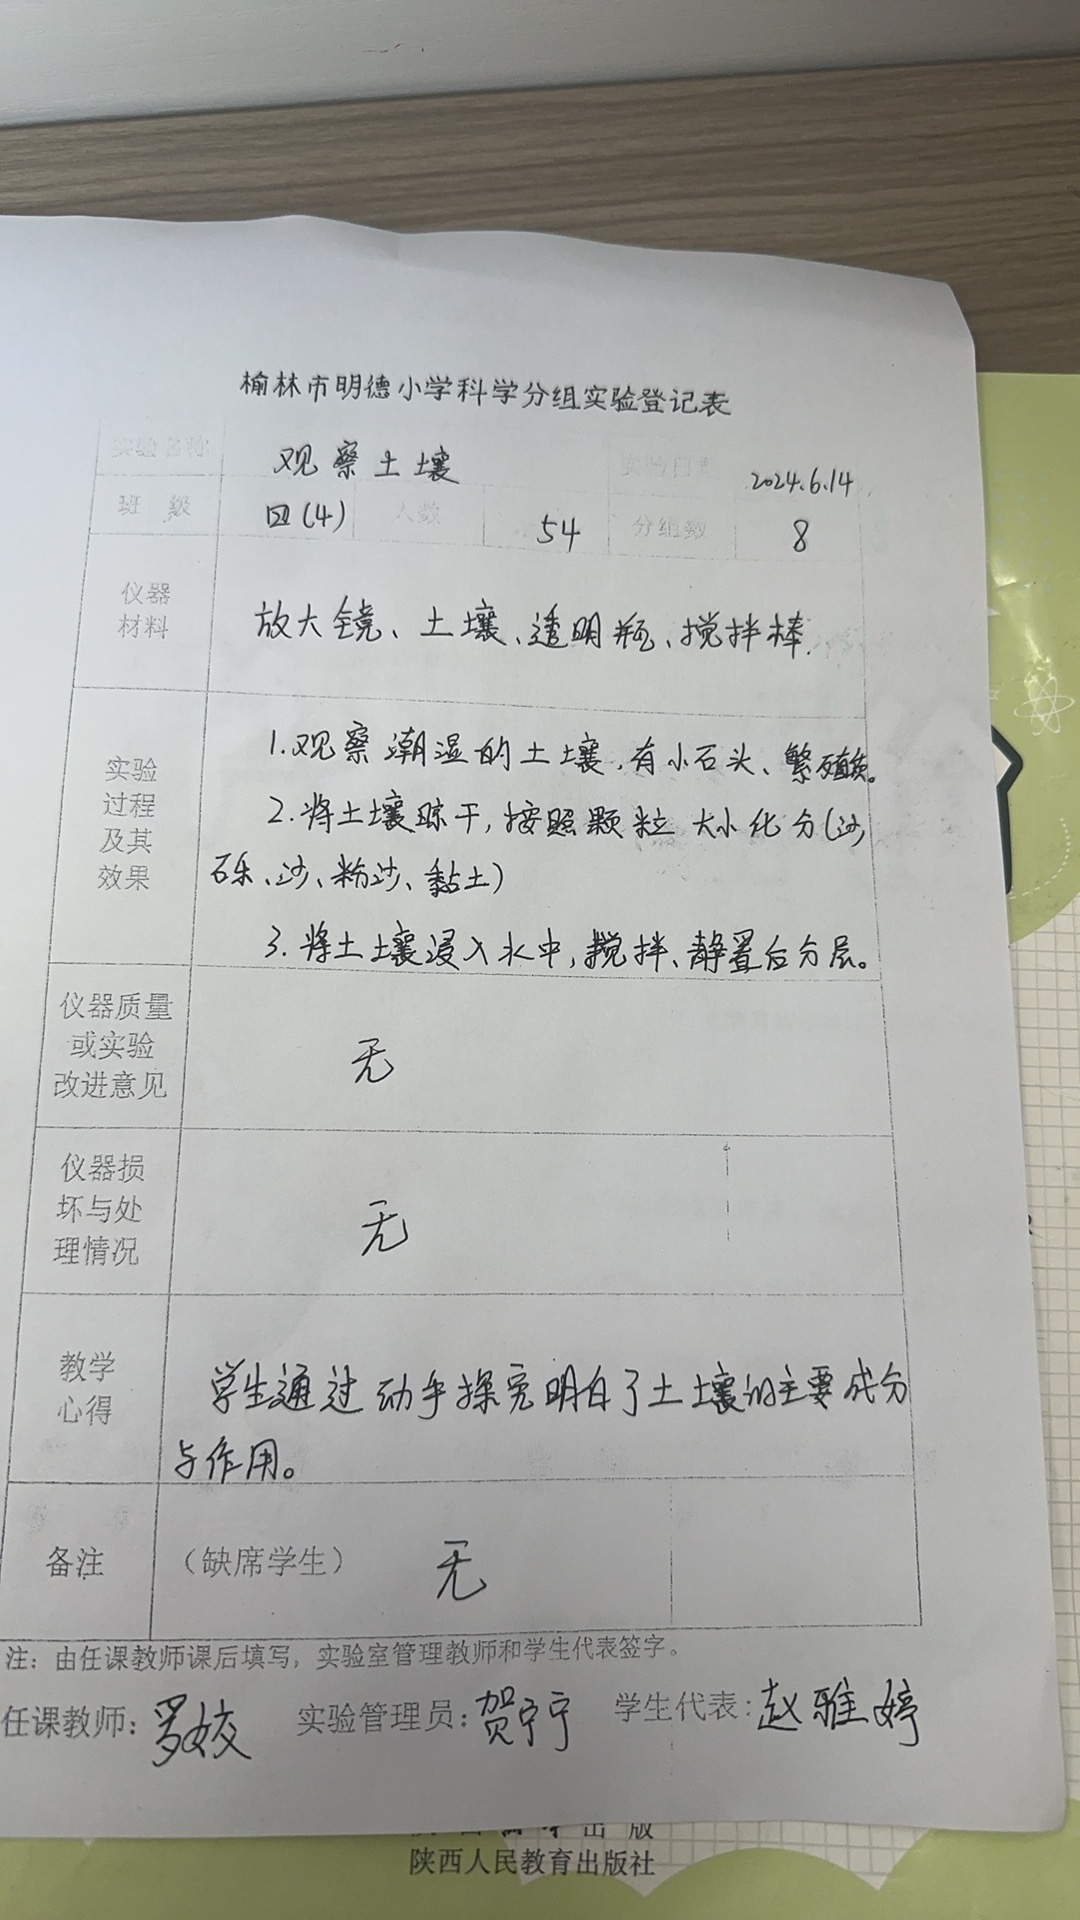 榆林市明德小学科学分组实验登记表
实验名称 观察土壤 实验日期 2024.6.14
班 级 四(4) 人数 54 分组数 8
仪器
材料
放大镜、土壤、透明瓶、搅拌棒.
实验
过程
及其
效果
1.观察潮湿的土壤,有小石头、
2.将土壤晾干,按照颗粒大小化分(沙
砾、沙、粉沙、黏土)
3.将土土壤浸入水中,搅拌、静置后分层。
仪器质量
或实验
改进意见
无
仪器损
坏与处
理情况
无
教学
心得
学生通过动手探究明白了土壤的主要成分
与作用。
备注
(缺席学生) 无
注:由任课教师课后填写,实验室管理教师和学生代表签字。
任课教师:罗姣 实验管理员:贺宁宁 学生代表:赵雅婷
出版
陕西人民教育出版社